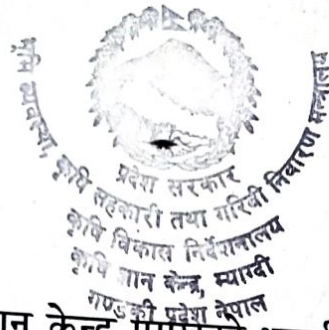 भूमि व्यवस्था, कृषि सहकारी तथा गरिवी निवारण मन्त्रालय
प्रदेश सरकार
कृषि विकास निर्देशनालय
कृषि ज्ञान केन्द्र, म्याग्दी
गण्डकी प्रदेश नेपाल
केन्द्र